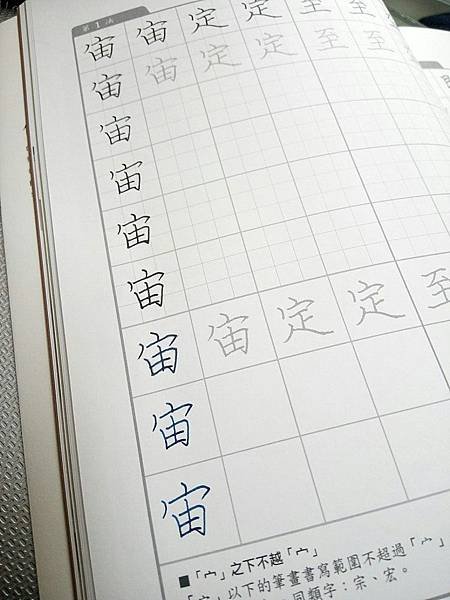 第1法
宙 宙 定 定 至 至
宙 宙 定 定 至 至
宙
宙
宙
宙
宙 宙 定 定 至
宙
宙
■「宀」之下不越「宀」
「宀」以下的筆畫書寫範圍不超過「宀」
同類字：宗、宏。